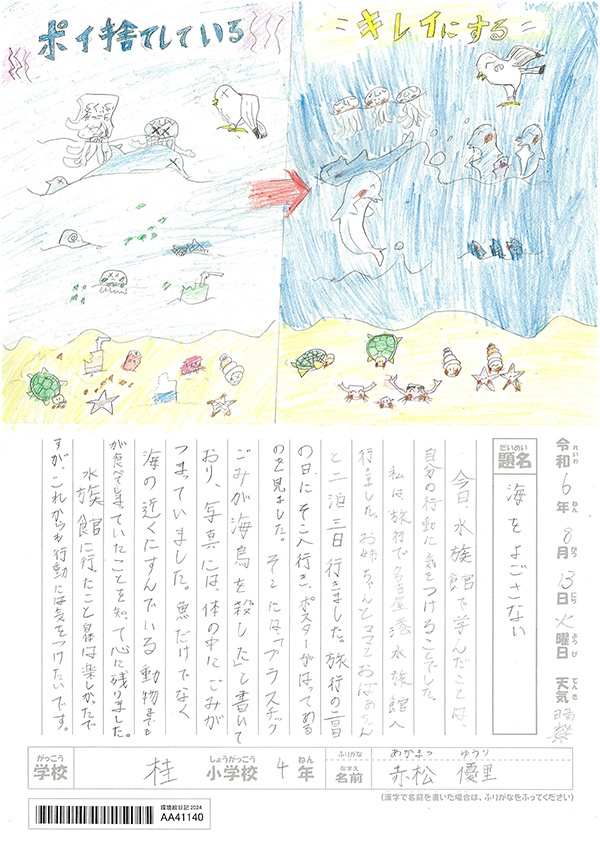 ポイ捨てしている
キレイにする
令和6年8月13日火曜日 天気
れいわ ねん がつ にち ようび てんき
だいめい
題名
海をよごさない
今日、水族館で学んだことは、
自分の行動に気をつけることでした。
私は、旅行で名古屋港水族館へ
行きました。お姉ちゃんとママとおばあちゃん
と二泊三日行きました。旅行の二日
の日にそこへ行き、ポスターがはってある
のを見ました。そこには、「プラスチック
ごみが海鳥を殺した」と書いて
おり、写真には、体の中にごみが
つまっていました。魚だけでなく
海の近くにすんでいる動物までも
が食べてしまっていたことを知って心に残りました。
水族館に行ったこと自体は楽しかったで
すが、これからも行動には気をつけたいです。
がっこう
学校
桂
しょうがっこう
小学校
4
ねん
年
ふりがな
あかまつ ゆうり
なまえ
名前
赤松 優里
(漢字で名前を書いた場合は、ふりがなをふってください)
環境絵日記2024
AA41140